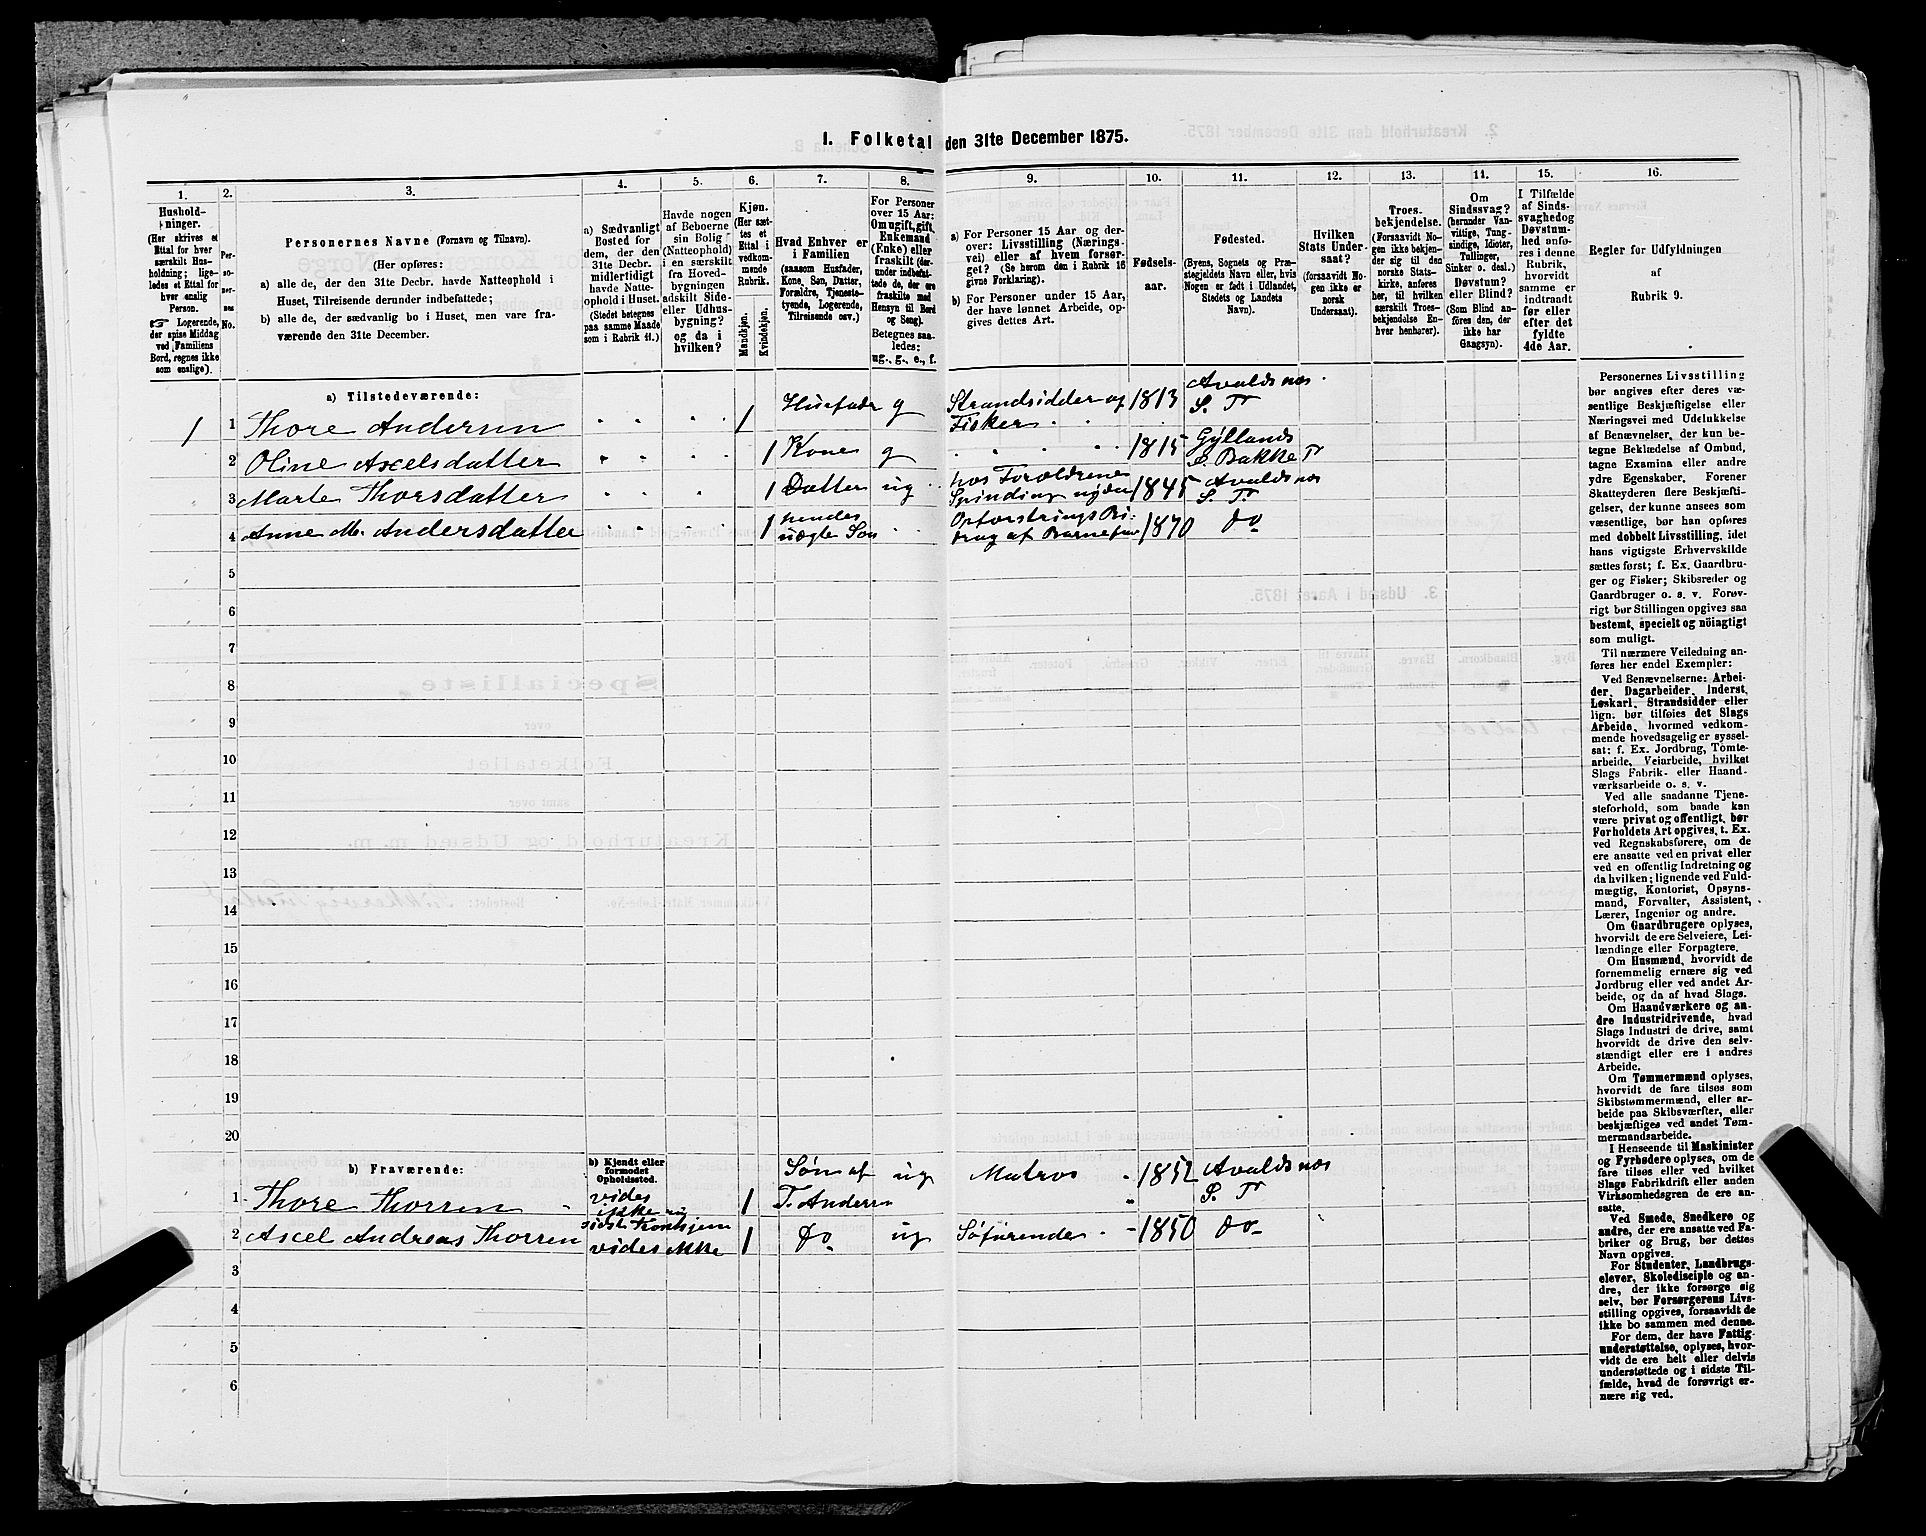 1. Folketal den 31te December 1875.
1. 2. 3. 4. 5. 6. 7. 8. 9. 10. 11. 12. 13. 14. 15. 16.
Hushold-
ninger.
(Her skrives et
Ettal for hver
særskilt Hus-
holdning; lige-
ledes et Ettal for
hver enslig
Person.
☞ Logerende,
der spise Middag
ved Familiens
Bord, regnes ikke
som enslige).
Per-
so-
ner-
nes
No.
Personernes Navne (Fornavn og Tilnavn).
(Her opføres:
a) alle de, der den 31te Decbr. havde Natteophold i
Huset, Tilreisende derunder indbefattede;
b) alle de, der sædvanlig bo i Huset, men vare fra-
værende den 31te December.
a) Sædvanligt
Bosted for
dem, der den
31te Decbr.
midlertidigt
havde Natte-
ophold i Huset.
(Stedet betegnes
paa samme Maade
som i Rubrik 11.)
Havde nogen
af Beboerne
sin Bolig
(Natteophold)
i en særskilt
fra Hoved-
bygningen
adskilt Side-
eller Udhus-
bygning?
og da i
hvilken?
Kjøn.
(Her sæt-
tes et
Ettal i
vedkom-
mende
Rubrik.
Mandkjøn.
Kvindekjøn.
Hvad Enhver er
i Familien
(saasom Husfader,
Kone, Søn, Datter,
Forældre, Tjeneste-
tyende, Logerende,
Tilreisende osv.)
For Personer
over 15 Aar:
Om ugift, gift,
Enkemand
(Enke) eller
fraskilt (der-
under indbefat-
tede de, der ere
fraskilte med
Hensyn til Bord
og Seng).
Betegnes saa-
ledes:
ug., g., e., f.
a) For Personer 15 Aar og der-
over: Livsstilling (Nærings-
vei) eller af hvem forsør-
get? (Se herom den i Rubrik 16
givne Forklaring).
b) For Personer under 15 Aar,
der have lønnet Arbeide, op-
gives dettes Art.
Fødsels-
aar.
Fødested.
(Byens, Sognets og Præ-
stegjeldets Navn eller, hvis
Nogen er født i Udlandet,
Stedets og Landets
Navn).
Hvilken
Stats Under-
saat?
(forsaavidt No-
gen ikke er
norsk
Undersaat).
Troes-
bekjendelse.
(Forsaavidt No-
gen ikke bekjen-
der sig til den
norske Stats-
kirke, anføres
her, til hvilken
særskilt Troes-
bekjendelse En-
hver henhører).
Om
Sindssvag?
(herunder Van-
vittige, Tung-
sindige, Idioter,
Tullinger,
Sinker o. desl.)
Døvstum?
eller Blind?
(Som Blind an-
føres den, der
ikke har
Gangsyn).
I Tilfælde
af Sinds-
svaghed og
Døvstum-
hed anfø-
res i denne
Rubrik,
hvorvidt
samme er
indtraadt
før eller
efter det
fyldte
4de Aar.
Regler for Udfyldningen
af
Rubrik 9.
a) Tilstedeværende:
1 1 Thore Andersen 1 Husfader g Strandsidder og Fisker 1813 Avaldsnæs S. Pr
2 Oline Axelsdatter 1 Kone g 1815 Gyllands S. Bakke Pr
3 Marte Thorsdatter 1 Datter ug hos Forældrene Spinding 1845 Avaldsnæs S. Pr
4 Anne M. Andersdatter 1 hendes uægte Søn Opfostrings Bidrag af Barnefar 1870 Do
5
6
7
8
9
10
11
12
13
14
15
16
17
18
19
20
b) Fraværende:
b) Kjendt eller
formodet
Opholdssted.
1 Thore Thorsen vides ikke 1 Søn af T. Andersen ug Matros 1852 Avaldsnæs S. Pr
2 Axel Andreas Thorsen vides ikke 1 Do ug Søfarende 1850 Do
3
4
5
6
Personernes Livsstilling
bør angives efter deres væ-
sentlige Beskjæftigelse eller
Næringsvei med Udelukkelse
af Benævnelser, der kun be-
tegne Beklædelse af Ombud,
tagne Examina eller andre
ydre Egenskaber. Forener
Skatteyderen flere Beskjæfti-
gelser, der kunne ansees som
væsentlige, bør han opføres
med dobbelt Livsstilling, idet
hans vigtigste Erhvervskilde
sættes først; f. Ex. Gaardbru-
ger og Fisker; Skibsreder og
Gaardbruger o. s. v. Forøv-
rigt bør Stillingen opgives saa
bestemt, specielt og nöiagtigt
som muligt.
Til nærmere Veiledning an-
føres her endel Exempler:
Ved Benævnelserne: Arbei-
der, Dagarbeider, Inderst,
Løskarl, Strandsidder eller
lign. bør tilføies det Slags
Arbeide, hvormed vedkom-
mende hovedsagelig er syssel-
sat: f. Ex. Jordbrug, Tømte-
arbeide, Veiarbeide, hvilket
Slags Fabrik- eller Haand-
værksarbeide o. s. v.
Ved alle saadanne Tjene-
steforhold, som baade kan
være privat og offentligt, bør
Forholdets Art opgives, t. Ex.
ved Regnskabsførere, om de
ere ansatte ved en privat eller
ved en offentlig Indretning og
da hvilken; lignende ved Fuld-
mægtig, Kontorist, Opsyns-
mand, Forvalter, Assistent,
Lærer, Ingeniør og andre.
Om Gaardbrugere oplyses,
hvorvidt de ere Selveiere, Lei-
lændinge eller Forpagtere.
Om Husmænd, hvorvidt de
fornemmelig ernære sig ved
Jordbrug eller ved andet Ar-
beide, og da af hvad Slags.
Om Haandværkere og an-
dre Industridrivende, hvad
Slags Industri de drive, samt
hvorvidt de drive den selv-
stændigt eller ere i andres
Arbeide.
Om Tømmermænd oplyses,
hvorvidt de fare tilsøs som
Skibstømmermænd, eller ar-
beide paa Skibsværfter, eller
beskjæftiges ved andet Tøm-
mermandsarbeide.
I Henseende til Maskinister
og Fyrbødere oplyses, om de
fare tilsøs eller ved hvilket
Slags Fabrikdrift eller anden
Virksomhedsgren de ere an-
satte.
Ved Smede, Snedkere og
andre, der ere ansatte ved Fa-
briker og Brug, bør dettes
Navn opgives.
For Studenter, Landbrugs-
elever, Skoledisciple og an-
dre, der ikke forsørge sig
selv, bør Forsørgerens Livs-
stilling opgives, forsaavidt de
ikke bo sammen med denne.
For dem, der have Fattig-
understøttelse, oplyses, hvor-
vidt de ere helt eller delvis
understøttede og i sidste Til-
fælde, hvad de forøvrigt er-
nære sig ved.